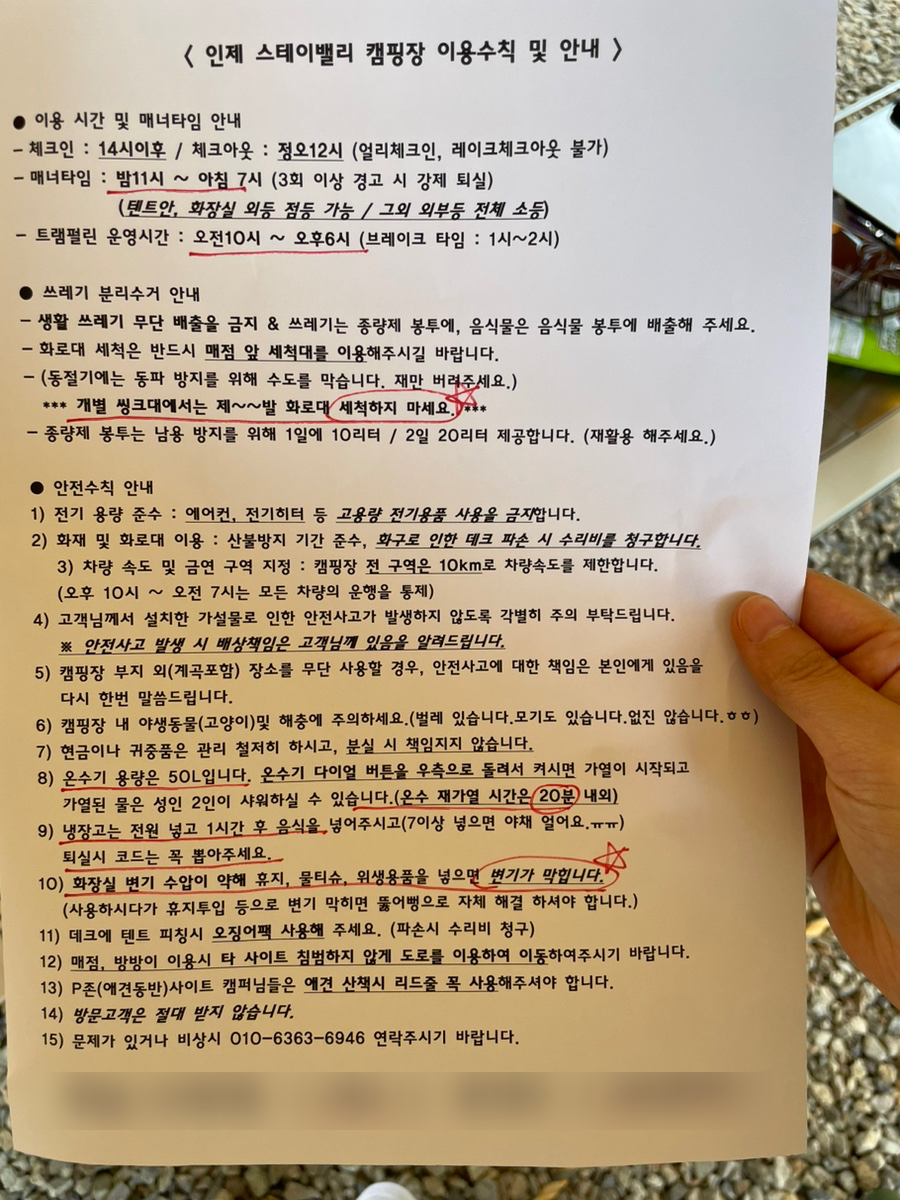 < 인제 스테이밸리 캠핑장 이용수칙 및 안내 >
● 이용 시간 및 매너타임 안내
- 체크인 : 14시이후 / 체크아웃 : 정오12시 (얼리체크인, 레이크체크아웃 불가)
- 매너타임 : 밤11시 ~ 아침 7시 (3회 이상 경고 시 강제 퇴실)
(텐트안, 화장실 외등 점등 가능 / 그외 외부등 전체 소등)
- 트램펄린 운영시간 : 오전10시 ~ 오후6시 (브레이크 타임 : 1시~2시)
● 쓰레기 분리수거 안내
- 생활 쓰레기 무단 배출을 금지 & 쓰레기는 종량제 봉투에, 음식물은 음식물 봉투에 배출해 주세요.
- 화로대 세척은 반드시 매점 앞 세척대를 이용해주시길 바랍니다.
- (동절기에는 동파 방지를 위해 수도를 막습니다. 재만 버려주세요.)
*** 개별 씽크대에서는 제~~발 화로대 세척하지 마세요. ***
- 종량제 봉투는 남용 방지를 위해 1일에 10리터 / 2일 20리터 제공합니다. (재활용 해주세요.)
● 안전수칙 안내
1) 전기 용량 준수 : 에어컨, 전기히터 등 고용량 전기용품 사용을 금지합니다.
2) 화재 및 화로대 이용 : 산불방지 기간 준수, 화구로 인한 데크 파손 시 수리비를 청구합니다.
3) 차량 속도 및 금연 구역 지정 : 캠핑장 전 구역은 10km로 차량속도를 제한합니다.
(오후 10시 ~ 오전 7시는 모든 차량의 운행을 통제)
4) 고객님께서 설치한 가설물로 인한 안전사고가 발생하지 않도록 각별히 주의 부탁드립니다.
※ 안전사고 발생 시 배상책임은 고객님께 있음을 알려드립니다.
5) 캠핑장 부지 외(계곡포함) 장소를 무단 사용할 경우, 안전사고에 대한 책임은 본인에게 있음을
다시 한번 말씀드립니다.
6) 캠핑장 내 야생동물(고양이)및 해충에 주의하세요.(벌레 있습니다.모기도 있습니다.없진 않습니다.ㅎㅎ)
7) 현금이나 귀중품은 관리 철저히 하시고, 분실 시 책임지지 않습니다.
8) 온수기 용량은 50L입니다. 온수기 다이얼 버튼을 우측으로 돌려서 켜시면 가열이 시작되고
가열된 물은 성인 2인이 샤워하실 수 있습니다.(온수 재가열 시간은 20분 내외)
9) 냉장고는 전원 넣고 1시간 후 음식을 넣어주시고(7이상 넣으면 야채 얼어요.ㅠㅠ)
퇴실시 코드는 꼭 뽑아주세요.
10) 화장실 변기 수압이 약해 휴지, 물티슈, 위생용품을 넣으면 변기가 막힙니다.
(사용하시다가 휴지투입 등으로 변기 막히면 뚫어뻥으로 자체 해결 하셔야 합니다.)
11) 데크에 텐트 피칭시 오징어팩 사용해 주세요. (파손시 수리비 청구)
12) 매점, 방방이 이용시 타 사이트 침범하지 않게 도로를 이용하여 이동하여주시기 바랍니다.
13) P존(애견동반)사이트 캠퍼님들은 애견 산책시 리드줄 꼭 사용해주셔야 합니다.
14) 방문고객은 절대 받지 않습니다.
15) 문제가 있거나 비상시 010-6363-6946 연락주시기 바랍니다.